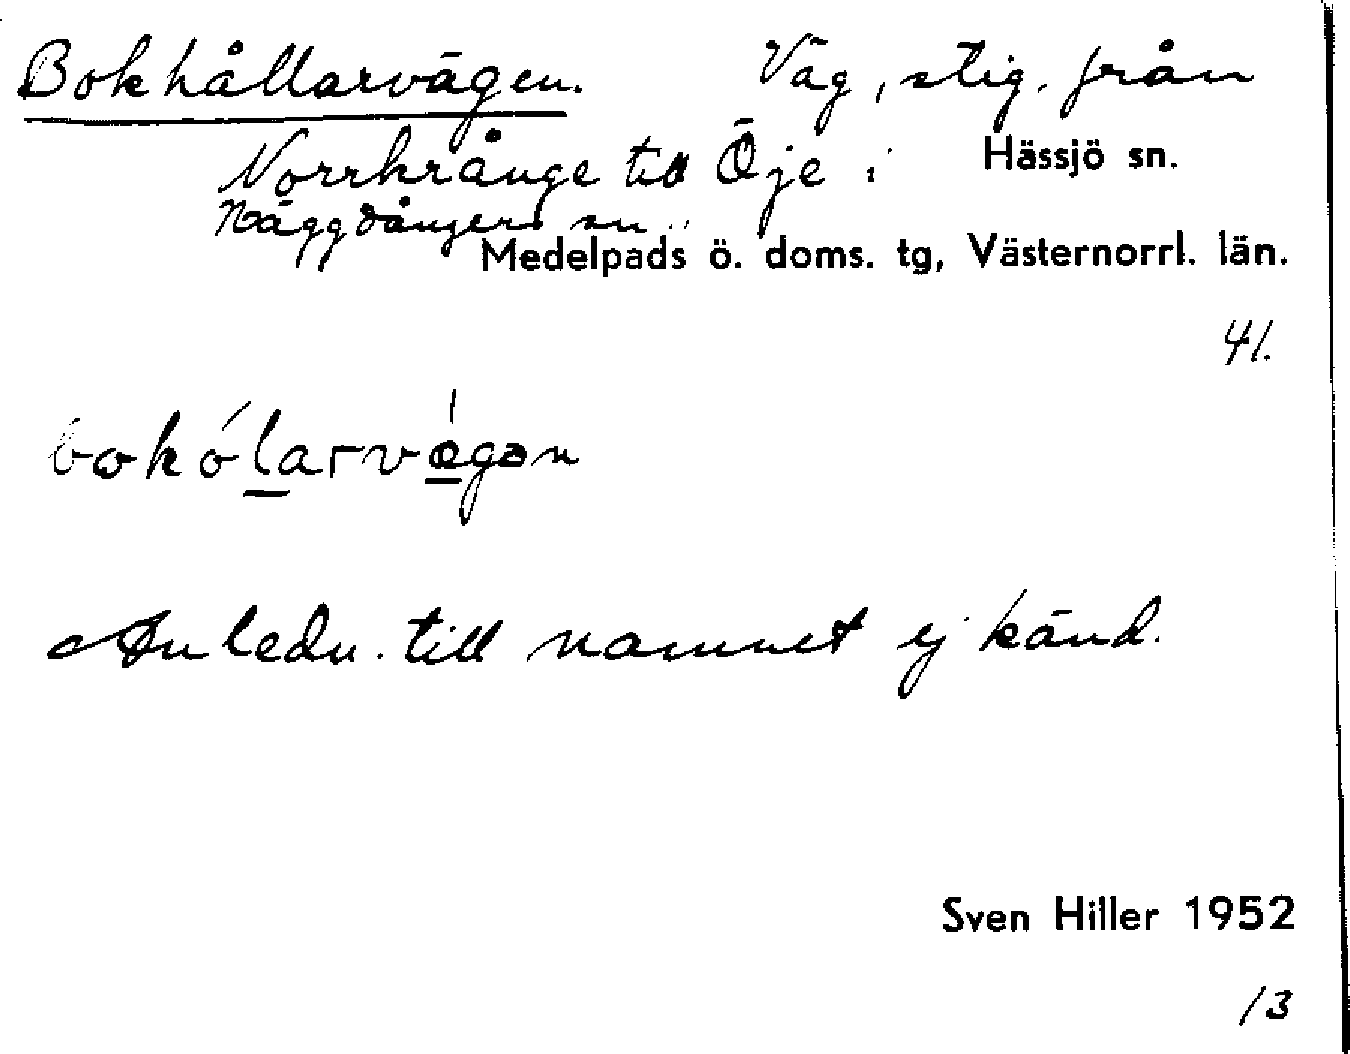 Bokhållarvägen. Väg, stig, från
Norrkrånge till Öje i Hässjö sn.
Häggdångers sn.
Medelpads ö. doms. tg, Västernorrl. län.
41.
bokólarvǽgən
Anledn. till namnet ej känd.
Sven Hiller 1952
13